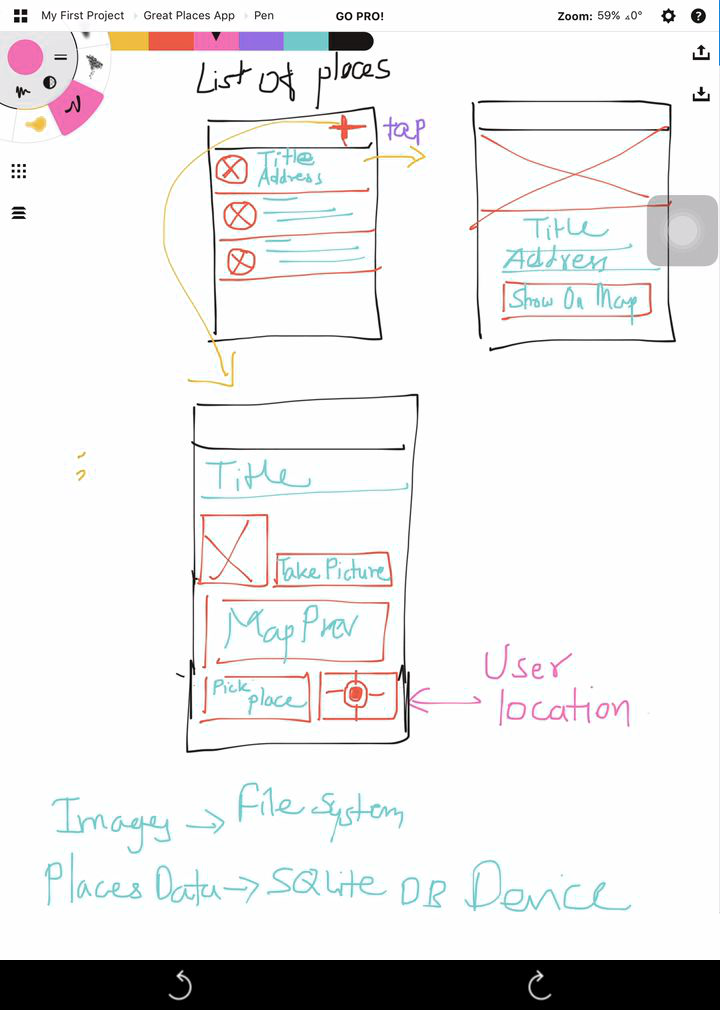 My First Project > Great Places App > Pen
GO PRO!
Zoom: 59% ⊿0°
List of places
tap
Title
Address
Title
Address
Show On Map
Title
Take Picture
Map Prev
Pick place
User
location
Images → File System
Places Data → SQLite DB Device